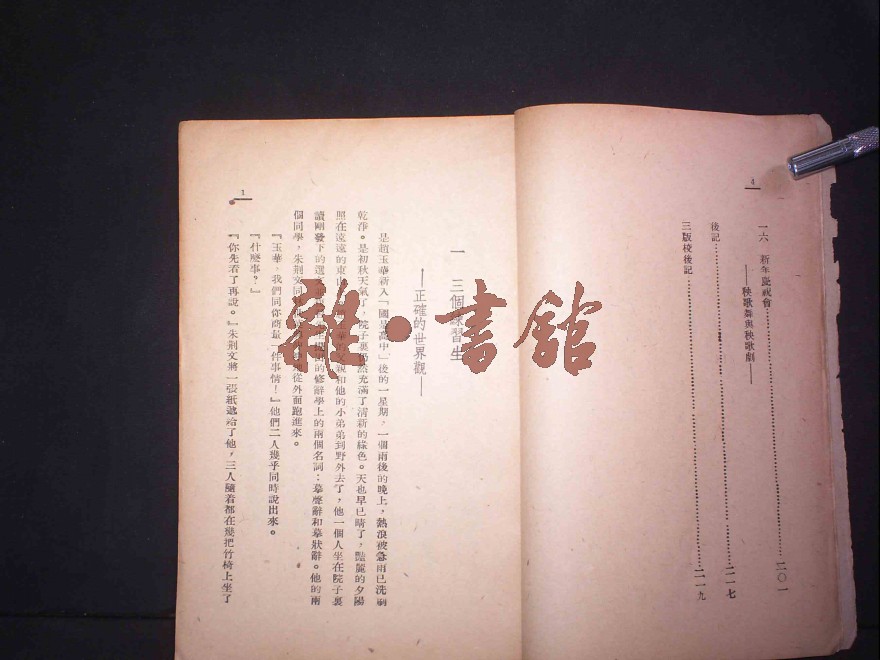 4
一六 新年慶祝會……二〇一
——秧歌舞與秧歌劇——
後記……二一七
三版校後記……二一九
1
一 三個練習生
——正確的世界觀——
是趙玉華新入「國是高中」後的一星期,一個雨後的晚上,熱浪被急雨已洗刷
乾淨。是初秋天氣了,院子裏仍然充滿了清新的綠色。天也早已晴了,豔麗的夕陽
照在遠遠的東山 父親和他的小弟弟到野外去了,他一個人坐在院子裏
讀剛發下的選文 的修辭學上的兩個名詞:摹聲辭和摹狀辭。他的兩
個同學,朱荆文同 從外面跑進來。
『玉華,我們同你商量一件事情!』他們二人幾乎同時說出來。
『什麼事?』
『你先看了再說。』朱荆文將一張紙遞給了他,三人隨着都在幾把竹椅上坐了
雅·書館